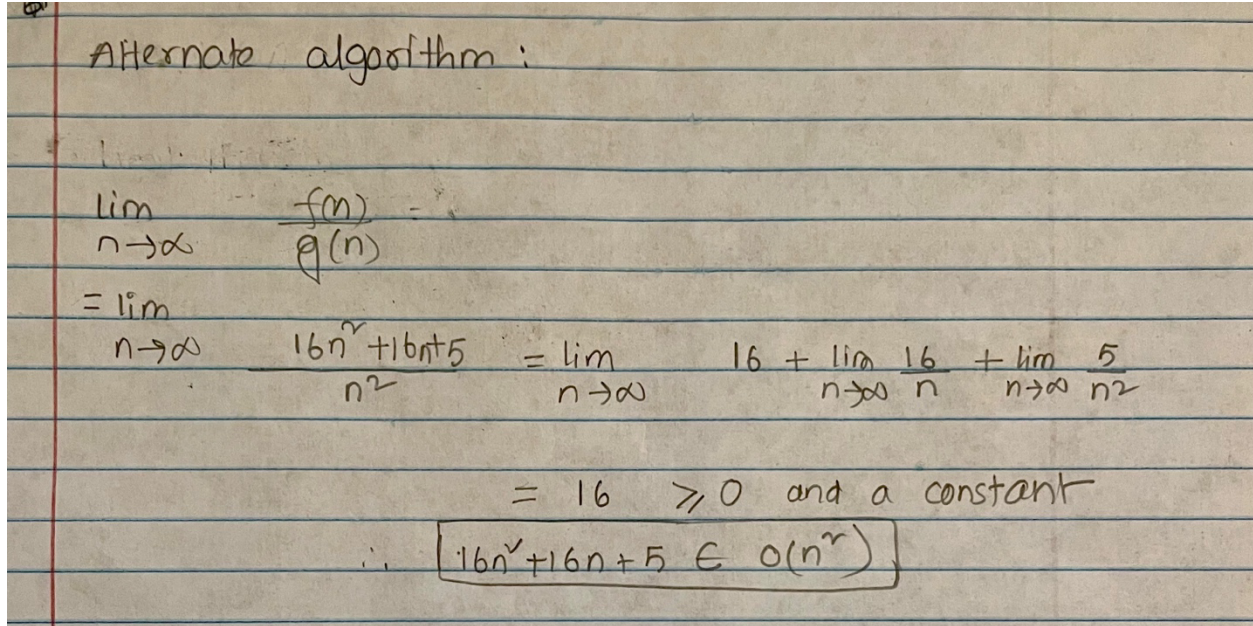 Alternate algorithm :
lim n→∞ f(n)/g(n) =
= lim n→∞ (16n² + 16n + 5)/n² = lim n→∞ 16 + lim n→∞ 16/n + lim n→∞ 5/n²
= 16 ⩾ 0 and a constant
∴ 16n² + 16n + 5 ∈ O(n²)